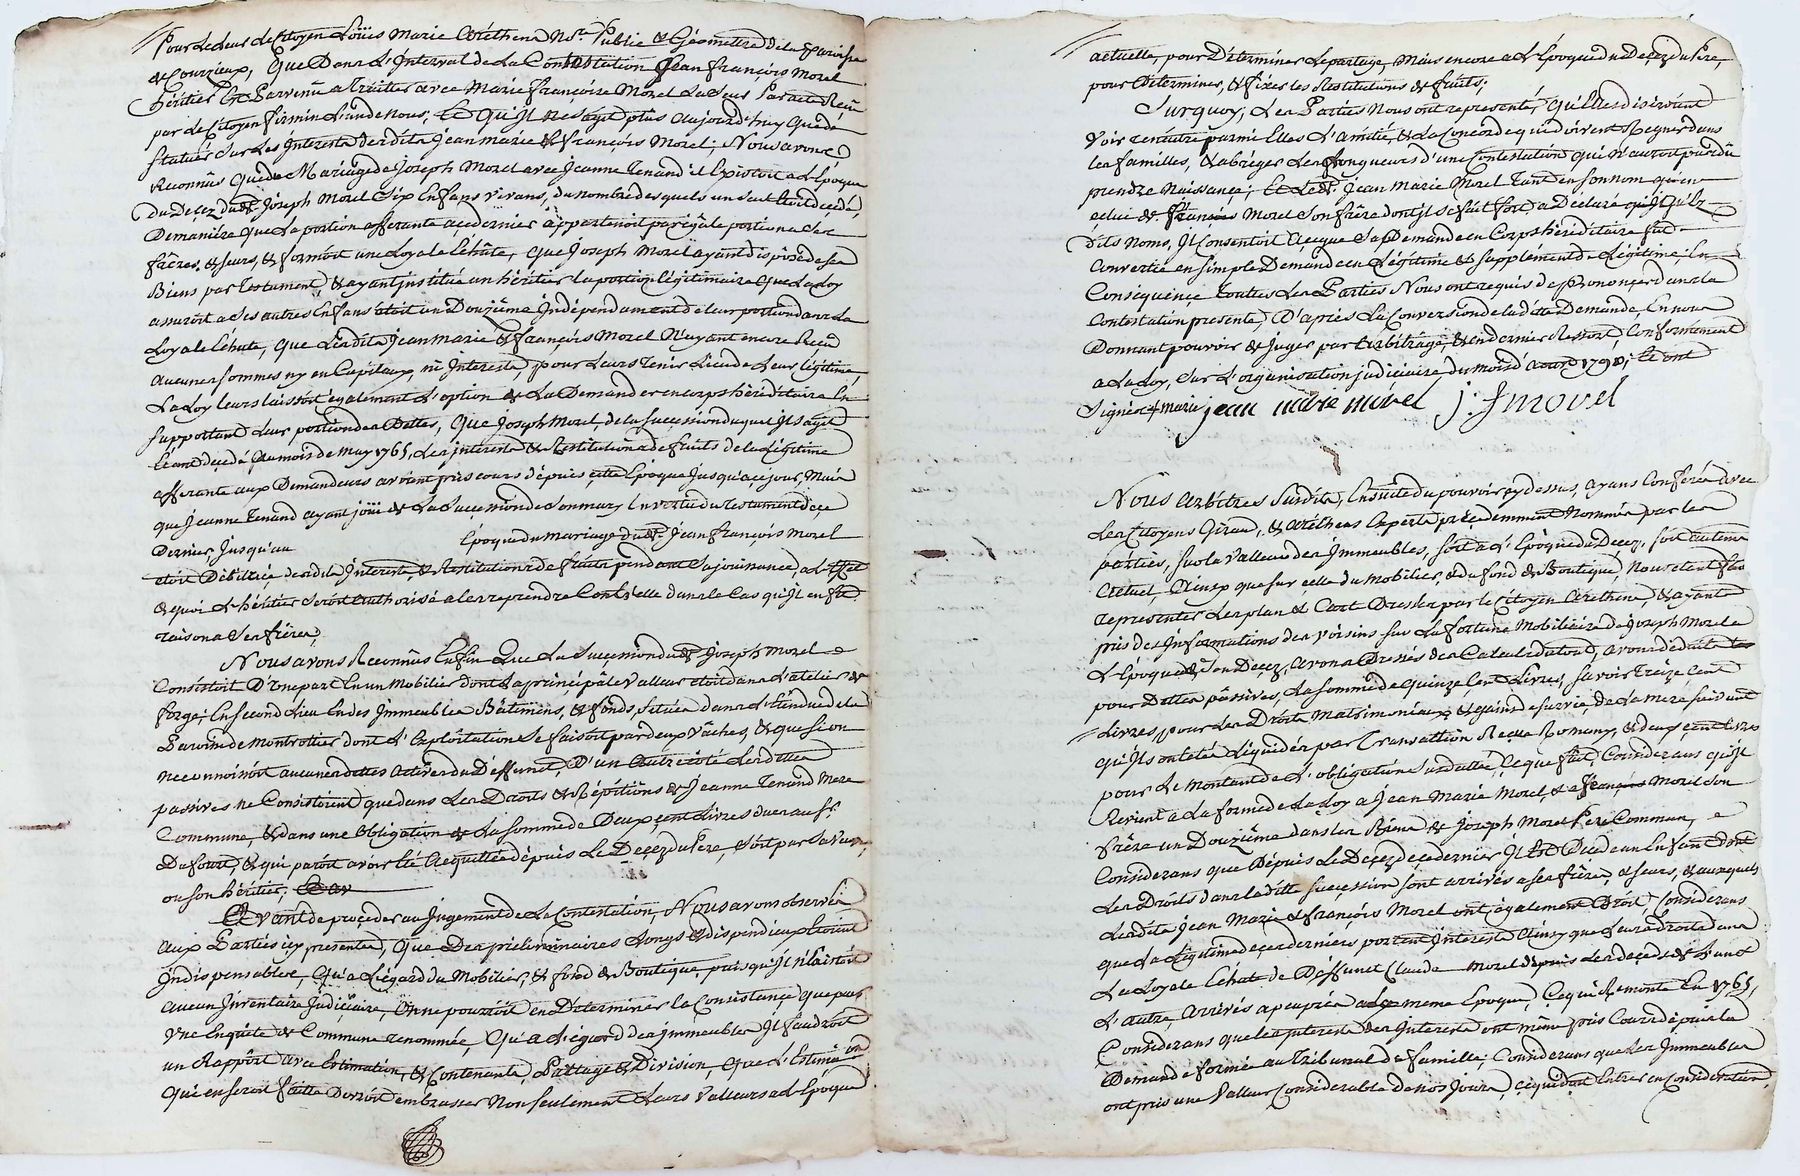 Pour Le leur Le Citoyen Loüis Marie Aréthens Nre. Public & Géomettre De la Paroisse
de Courzieux, Que Dans L'Interval de La Contestation Jean françois Morel
héritier Est Parvenu a Traitter avec Marie françoise Morel La Seur Par acte Reçu
par Le Citoyen firmin L'un de Nous, Ce Qu'Il Ne S'agit plus aujourd'huy Que de
statuer Sur Les Interests desdits Jean Marie & françois Morel; Nous avons
Reconnüs Que du Mariage de Joseph Morel avec Jeanne Tenand il Existoit a L'Epoque
Du Decez Dudt. Joseph Morel Six Enfans vivans, du nombre desquels un Seul Etoit décédé,
De maniêre Que La portion afferante a ce dernier appartenoit par égâle portion a Ses
frêres & seurs, & formoit une Loyale Echûte, Que Joseph Morel ayant disposé de ses
Biens par testament & ayant institué un héritier La portion légitimaire Que La Loy
assuroit a Ses autres Enfans étoit un Douziême Indépendament de Leur portion dans La
Loyale Echute, Que Lesdits Jean Marie & François Morel N'ayant encore Reçu
aucunes sommes ny en Capitaux, ni Interests, pour Leurs Tenir Lieu de Leur Légitime,
La Loy leurs laissoit également L'option de La Demander en corps héréditaire En
supportant Leur portion des Dettes, Que Joseph Morel, de la succession duquel Il s'agit
Etant décédé au mois de may 1765, Les interests & Restitutions de fruits de la Légitime
afferante aux Demandeurs avoient pris cours dépuis cette Epoque Jusqu'a ce jour, Mais
que Jeanne Tenand ayant joüi de La Succession de Son mary En vertu du Testament de ce
Dernier, Jusqu'au Epoque du mariage dudt. Jean françois Morel
étoit Débitrice desdits Interests, & Restitutions de fruits pendant Sa jouissance, a L'Effet
de quoi L'héritier Seroit authorisé a les reprendre Contr'elle dans le Cas qu'Il en fit
raison a Ses frêres,
Nous avons Reconnüs Enfin Que La Succession dudt. Joseph Morel
Consistoit D'Une part En un Mobilier dont La principâle Valleur étoit dans L'atelier de
forge; En second Lieu En des Immeubles Bâtimens, & fonds, Situés dans L'Etendue de la
Paroisse de Montrottier dont L'Exploitation Se faisoit par deux Vâches, & que si on
ne connoissoit aucunes dettes actives du Déffunct, D'un autre côté Les dettes
passives ne Consistoient que dans Les Droits & Répétitions de Jeanne Tenand Mere
Commune, & dans une Obligation de La somme de Deux cent Livres düe au Sr.
Dufourt, & qui paroit avoir été Acquittée dépuis Le Decez du Pere, Soit par Sa Veuve,
ou son héritier;
Avant de proceder au Jugement de La Contestation, Nous avons observés
aux Parties icy présentes, Que Des préliminaires Longs & dispendieux Etoient
Indispensables, Qu'a L'égard du Mobilier, & fond de Boutique, puisqu'Il N'Existoit
aucun Inventaire Judiciaire, On ne pourroit en Déterminer la Consistance que par
Une Enquête de Commune renommée, Qu'a L'égard des immeubles Il faudroit
un Rapport avec Estimation, & Contenance, Partage & Division, Que L'Estimation
Qui en seroit faitte Devroit embrasser Non seulement Leurs Valleurs a L'Epoque
actuelle, pour Déterminer Le partage, Mais encore a L'Epoque du Decez du Pere,
pour Determiner, & fixer les Restitutions de fruits;
Surquoy, Les Parties Nous ont representé, Qu'Elles désiroient
Voir renaitre parmi Elles L'amitié, & La Concorde qui doivent Regner dans
les familles, & abréger Les Longueurs d'une Contestation qui N'auroit pas dû
prendre Naissance; Ledt. Jean Marie Morel Tant en son nom qu'en
celui de François Morel Son frêre dont il Se fait fort, a Declaré qu'Il Esd.
dits Noms, Il Consentoit a ce que Sa Demande en Corps héréditaire fut
Convertie en simple Demande en Légitime & Supplément de Légitime; En
Conséquençe Toutes Les Parties Nous ont requis de Prononcer dans la
Contestation presente, D'après La Conversion de ladite Demande, En nous
Donnant pouvoir de Juger par Arbitrage, & en dernier Ressort, Conformément
a La Loy, Sur L'organisation judiciaire du mois d'aoust 1790; Et ont
Signés + marie jean marie morel j: f morel
Nous arbitres Susdits, Ensuite du pouvoir cy dessus, ayans Conférés avec
Les Citoyens Girau, & Aréthens Experts précédemment Nommés par les
parties, sur la Valleur des Immeubles, soit a L'Epoque du Decez, soit au tems
actuel, Ainsy que sur celle du Mobilier, & du fond de Boutique, Nous étant fait
représenter Les plan & Cart Dressés par le Citoyen Arethens, & ayant
pris des Informations des voisins sur La fortune Mobiliaire de Joseph Morel a
L'Epoque de Son Decez, avons Dressés des Calculs du tout, avons déduit
pour Dettes pâssives, La somme de Quinze Cent Livres, savoir Treize Cent
Livres pour Les Droits Matrimoniaux, & gains de Survie de La Mere suivant
qu'Ils ont étés Liquidés par Transaction Reçue Romany, & deux cent Livres
pour Le montant de L'obligation Susdatée, Ce que fait, Considerans qu'Il
Revient a La forme de La Loy a Jean Marie Morel, & a François Morel Son
frêre un Douziême dans les Biens de Joseph Morel Pere Commun,
Considerans que Dépuis Le Decez de ce dernier Il Est Décédé un Enfant dont
Les Droits dans la ditte succession sont arrivés a ses frêres, & seurs, & auxquels
Lesdits Jean Marie & François Morel ont également Droit, Considerans
que La Légitime de ces derniers portent Interests Ainsy que Leurs Droits dans
La Loyale Echute de Déffunct Claude Morel dépuis Les décés de L'un &
L'autre, arrivés a peu près a la meme Epoque, Ce qui Remonte En 1765,
Considerans que les Interests des Interests ont même pris Cours dépuis la
Demande formée au Tribunal de famille; Considerans que Les Immeubles
ont pris une Valleur Considerable de nos Jours, ce qui doit Entrer en Considération,